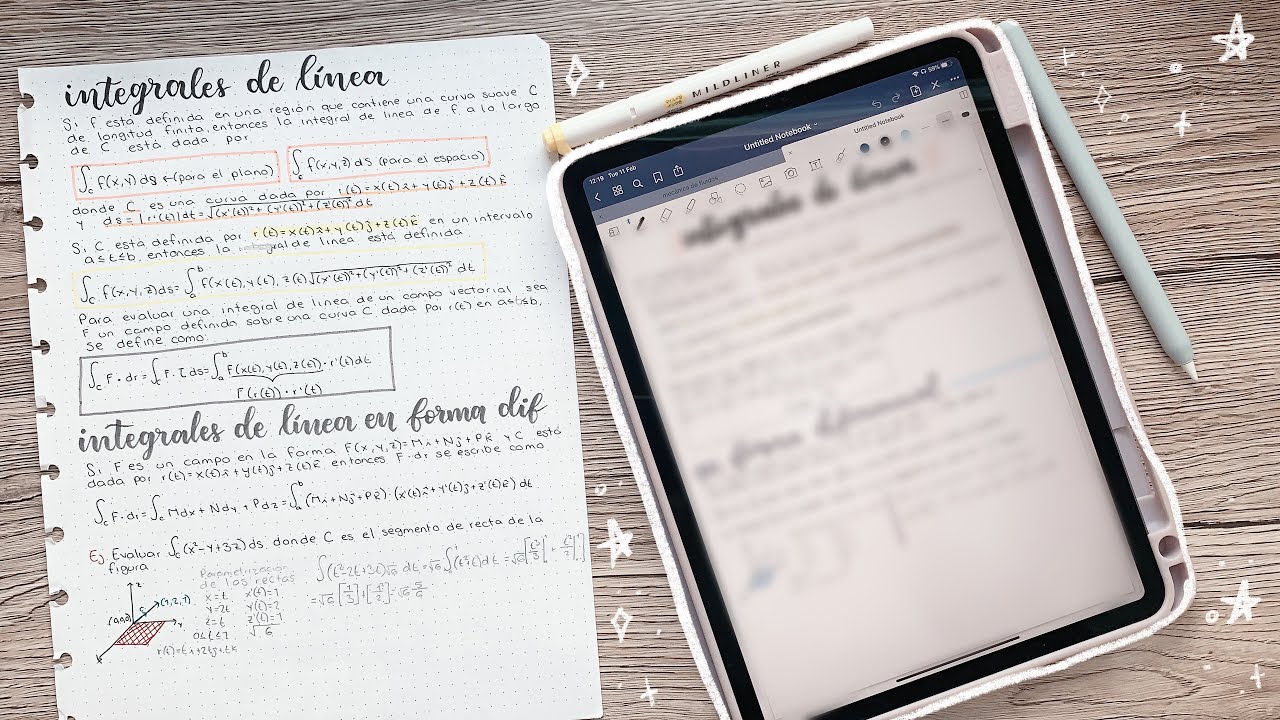 integrales de línea
Si f está definida en una región que contiene una curva suave C
de longitud finita, entonces la integral de línea de f a lo largo
de C está dada por
∫c f(x,y) ds ←(para el plano)
∫c f(x,y,z) ds (para el espacio)
donde C es una curva dada por r(t)=x(t)î+y(t)ĵ+z(t)k̂
y ds=|r'(t)|dt=√(x'(t))²+(y'(t))²+(z'(t))² dt
Si C está definida por r(t)=x(t)î+y(t)ĵ+z(t)k̂ en un intervalo
a≤t≤b, entonces la integral de línea está definida
∫c f(x,y,z)ds=∫ₐᵇ f(x(t),y(t),z(t)√(x'(t))²+(y'(t))²+(z'(t))² dt
Para evaluar una integral de línea de un campo vectorial sea
F un campo definido sobre una curva C dada por r(t) en a≤t≤b,
se define como:
∫c F·dr=∫c F·T ds=∫ₐᵇ F(x(t),y(t),z(t))·r'(t)dt
F(r(t))·r'(t)
integrales de línea en forma dif
Si F es un campo en la forma F(x,y,z)=Mî+Nĵ+Pk̂ y C está
dada por r(t)=x(t)î+y(t)ĵ+z(t)k̂ entonces F·dr se escribe como
∫c F·dr=∫c Mdx+Ndy+Pdz=∫ₐᵇ(Mî+Nĵ+Pk̂)·(x'(t)î+y'(t)ĵ+z'(t)k̂)dt
Ej Evaluar ∫c(x²-y+3z)ds donde C es el segmento de recta de la
figura
z
(0,0,0)
C
(1,2,1)
y
x
Parametrización
de las rectas
x=t x'(t)=1
y=2t y'(t)=2
z=t z'(t)=1
0≤t≤1 √6
r(t)=tî+2tĵ+tk̂
∫(t²-2t+3t)√6 dt=√6∫(t²+t)dt=√6[t³/3|+t²/2|]
=√6[1/3]+[1/2]=√6 5/6
MILDLINER
12:19 Tue 11 Feb
59%
Untitled Notebook
Untitled Notebook
mecánica de fluidos